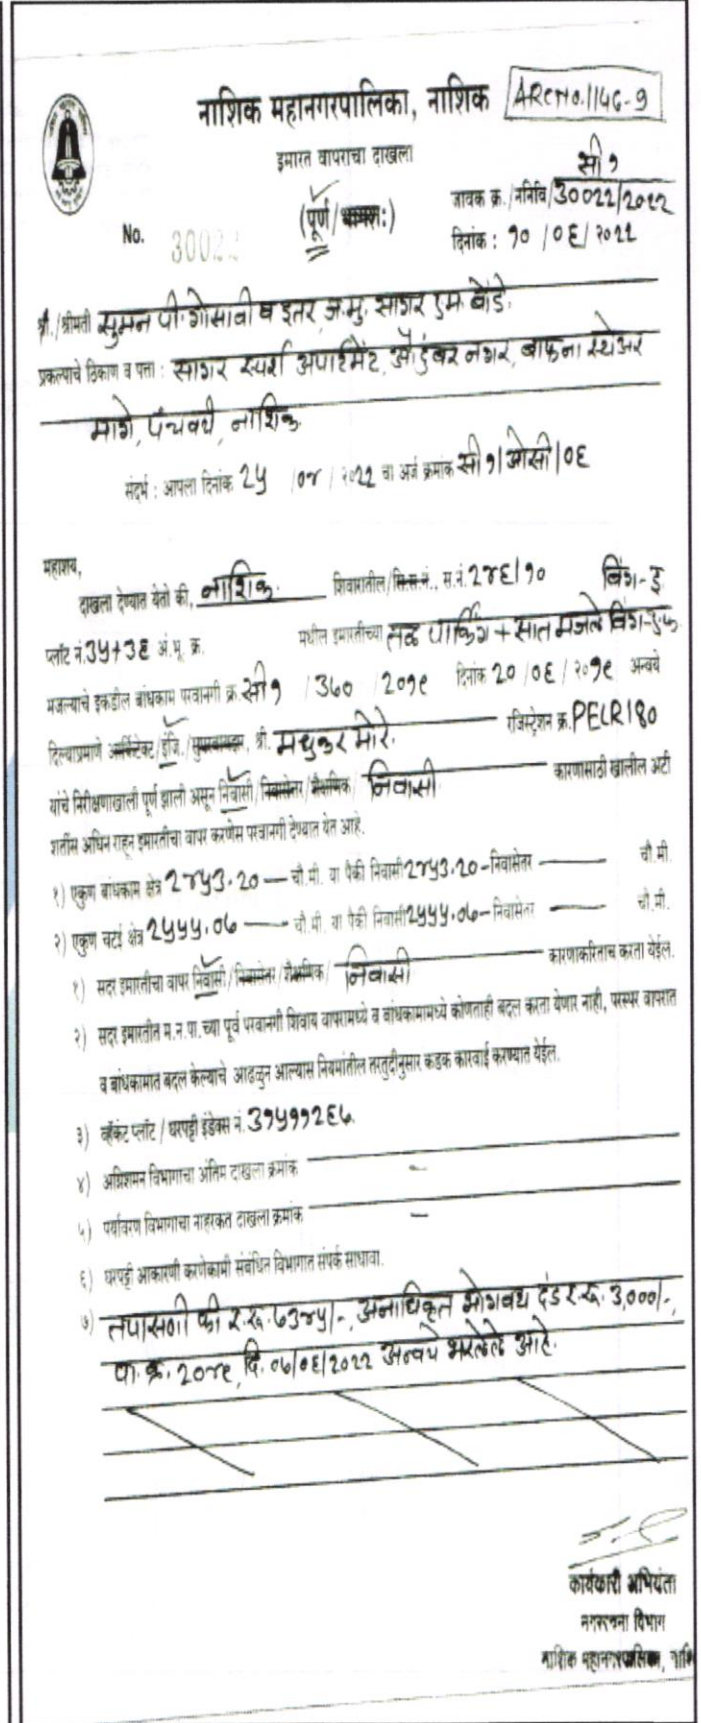 नाशिक महानगरपालिका, नाशिक
ARCNO.1146-9
इमारत वापराचा दाखला
सी१
(पूर्ण/भागशः)
जावक क्र./ननिवि/30022/2022
No. 3002
दिनांक : १० /०६/ २०२२
श्री./श्रीमती सुमन पी. गोसावी व इतर ज.मु. सागर एम. बोंडे.
प्रकल्पाचे ठिकाण व पत्ता : सागर स्पर्श अपार्टमेंट, औदुंबर नगर, बाफना स्थेअर
मागे, पंचवटी, नाशिक.
संदर्भ : आपला दिनांक 2५ /०४ / २०22 चा अर्ज क्रमांक सी१/ओसी/०६
महाशय,
दाखला देण्यात येतो की, नाशिक. शिवारातील/सि.स.नं., स.नं. 2४६/१० विंग-इ
प्लॉट नं. 3५+3६ अं.भू. क्र. मधील इमारतीच्या तळ पार्किंग + सात मजले विंग-एफ
मजल्याचे इकडील बांधकाम परवानगी क्र. सी१ / 3६० / 2०१९ दिनांक 20 /०६ / २०१९ अन्वये
दिल्याप्रमाणे आर्किटेक्ट/इंजि./सुपरवायझर, श्री. मधुकर मोरे. रजिस्ट्रेशन क्र. PELR180
यांचे निरीक्षणाखाली पूर्ण झाली असून निवासी/निवासेतर/शैक्षणिक/ निवासी कारणासाठी खालील अटी
शर्तीस अधिन राहून इमारतीचा वापर करणेस परवानगी देण्यात येत आहे.
१) एकुण बांधकाम क्षेत्र 2४५3.20 — चौ.मी. या पैकी निवासी 2४५3.20 - निवासेतर — चौ.मी.
२) एकुण चटई क्षेत्र 2५५५.०७ — चौ.मी. या पैकी निवासी 2५५५.०७ - निवासेतर — चौ.मी.
१) सदर इमारतीचा वापर निवासी/निवासेतर/शैक्षणिक/ निवासी कारणाकरिताच करता येईल.
२) सदर इमारतीत म.न.पा.च्या पूर्व परवानगी शिवाय वापरामध्ये व बांधकामामध्ये कोणताही बदल करता येणार नाही, परस्पर वापरात
व बांधकामात बदल केल्याचे आढळुन आल्यास नियमांतील तरतुदीनुसार कडक कारवाई करण्यात येईल.
३) व्हॅकंट प्लॉट / घरपट्टी इंडेक्स नं. 3१५११2६७.
४) अग्निशमन विभागाचा अंतिम दाखला क्रमांक –
५) पर्यावरण विभागाचा नाहरकत दाखला क्रमांक –
६) घरपट्टी आकारणी करणेकामी संबंधित विभागात संपर्क साधावा.
७) तपासणी फी र.रू. ७३४५/-, अनाधिकृत भोगवटा दंड र.रू. 3,०००/-,
पा.क्र. 2०४९, दि. ०७/०६/2०22 अन्वये भरलेले आहे.
कार्यकारी अभियंता
नगररचना विभाग
नाशिक महानगरपालिका, नाशि